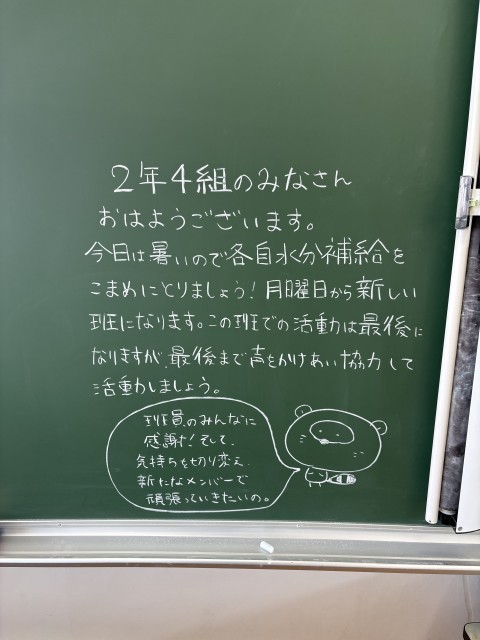 2年4組のみなさん
おはようございます。
今日は暑いので各自水分補給を
こまめにとりましょう！月曜日から新しい
班になります。この班での活動は最後に
なりますが、最後まで声をかけあい協力して
活動しましょう。
班員のみんなに
感謝！そして、
気持ちを切り変え、
新たなメンバーで
頑張っていきたいの。